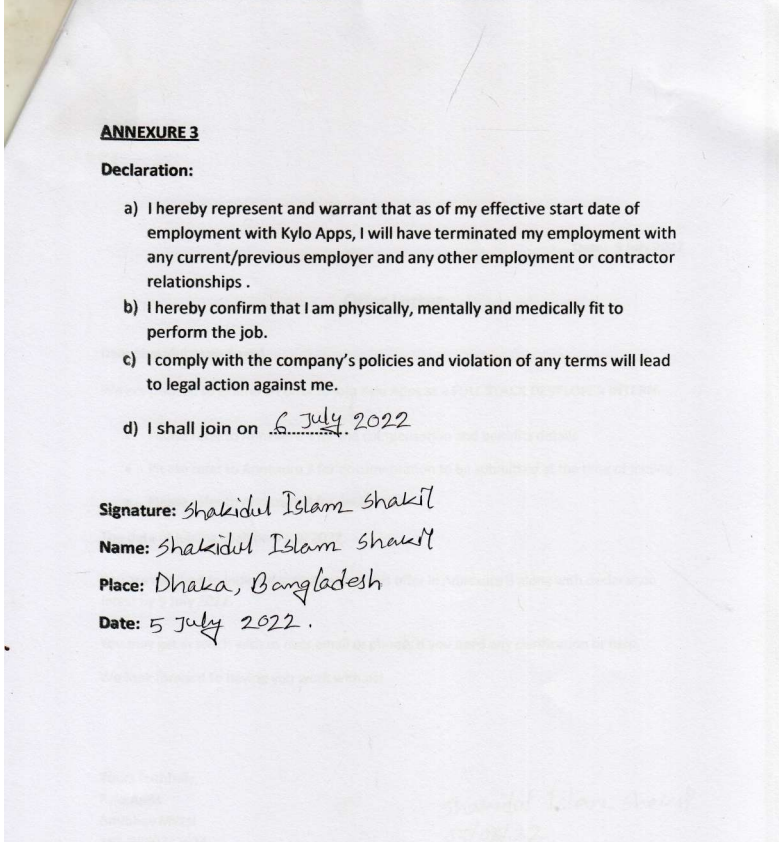 ANNEXURE 3
Declaration:
a) I hereby represent and warrant that as of my effective start date of
employment with Kylo Apps, I will have terminated my employment with
any current/previous employer and any other employment or contractor
relationships .
b) I hereby confirm that I am physically, mentally and medically fit to
perform the job.
c) I comply with the company's policies and violation of any terms will lead
to legal action against me.
d) I shall join on 6 July 2022
Signature: Shakidul Islam Shakil
Name: Shakidul Islam Shakil
Place: Dhaka, Bangladesh
Date: 5 July 2022.